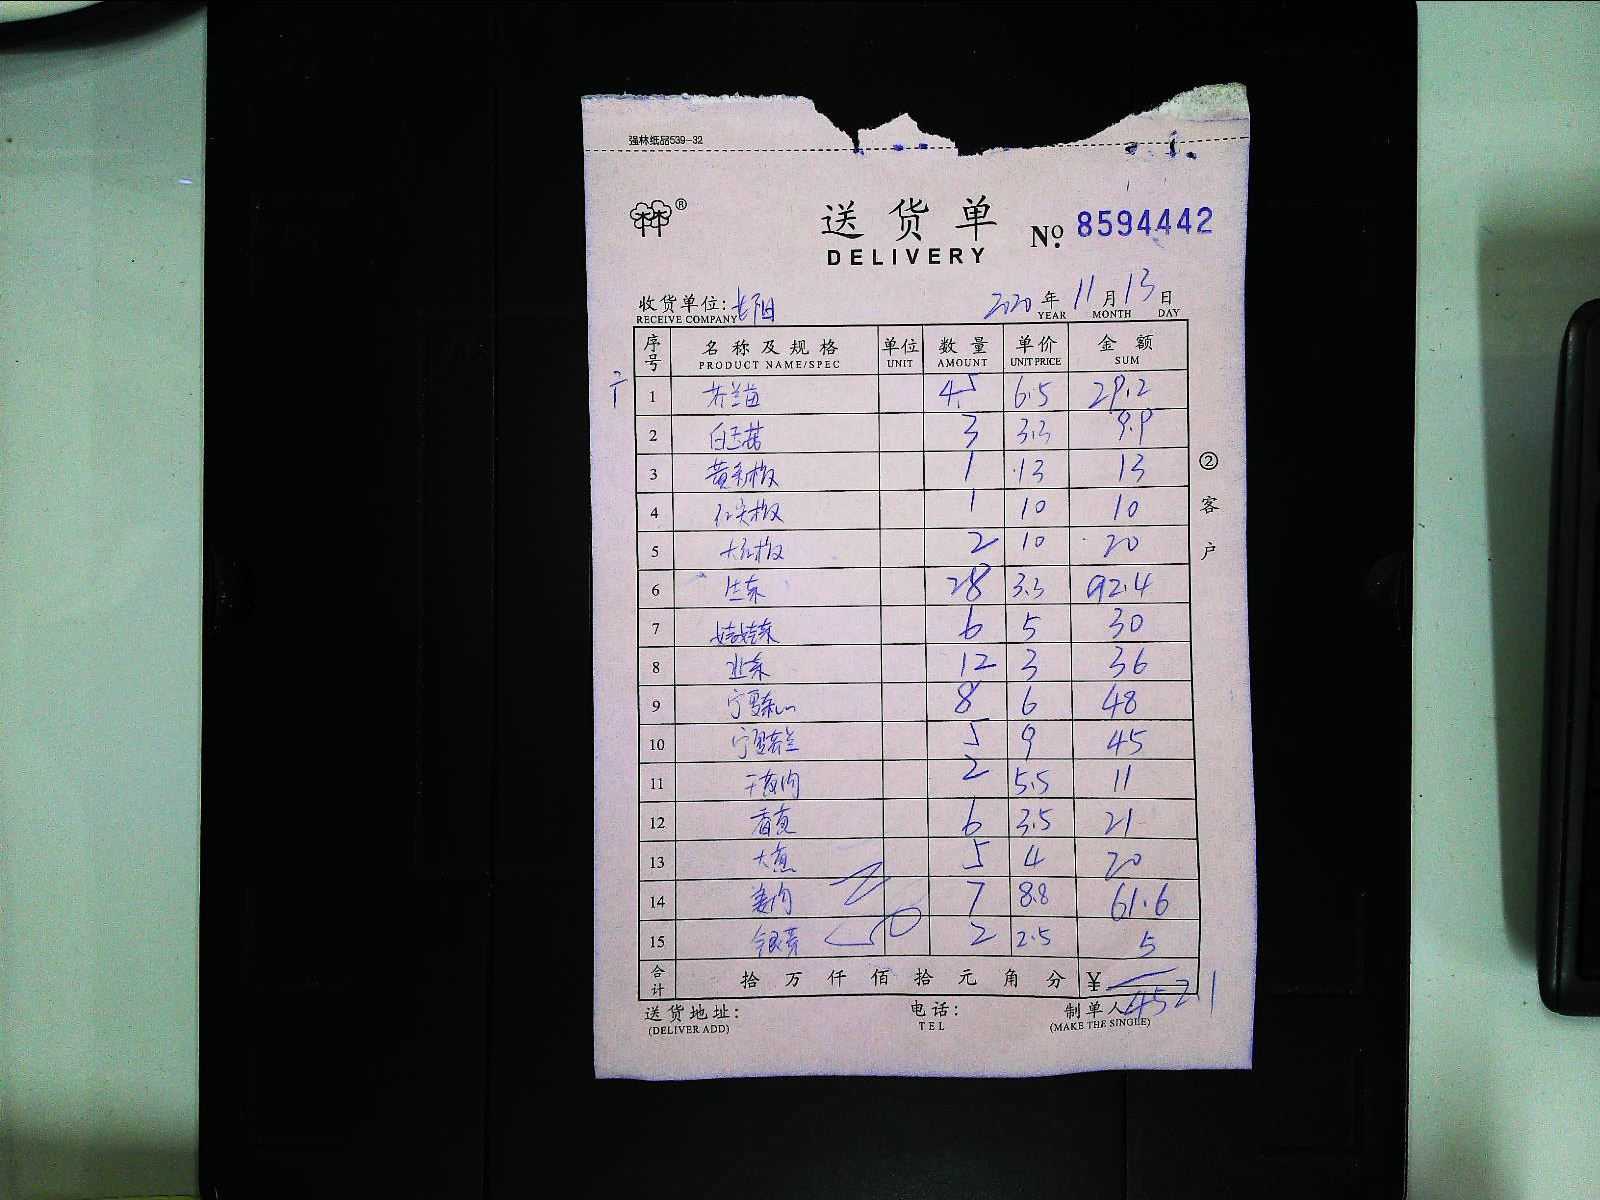 强林纸品539-32
®
送货单
DELIVERY
No. 8594442
收货单位: 长阳 2020 年 11 月 13 日
RECEIVE COMPANY YEAR MONTH DAY
序号 名称及规格 单位 数量 单价 金额
PRODUCT NAME/SPEC UNIT AMOUNT UNIT PRICE SUM
1 芥兰苗 4.5 6.5 29.2
2 白玉菇 3 3.3 9.9
3 黄彩椒 1 13 13
4 红尖椒 1 10 10
5 大红椒 2 10 20
6 生菜 28 3.3 92.4
7 娃娃菜 6 5 30
8 12 3 36
9 宁夏菜心 8 6 48
10 宁夏芥兰 5 9 45
11 干葱肉 2 5.5 11
12 香葱 6 3.5 21
13 大葱 5 4 20
14 姜肉 7 8.8 61.6
15 银芽 2 2.5 5
合计 拾 万 仟 佰 拾 元 角 分 ¥ 452.1
送货地址: 电话: 制单人
(DELIVER ADD) TEL (MAKE THE SINGLE)
② 客户